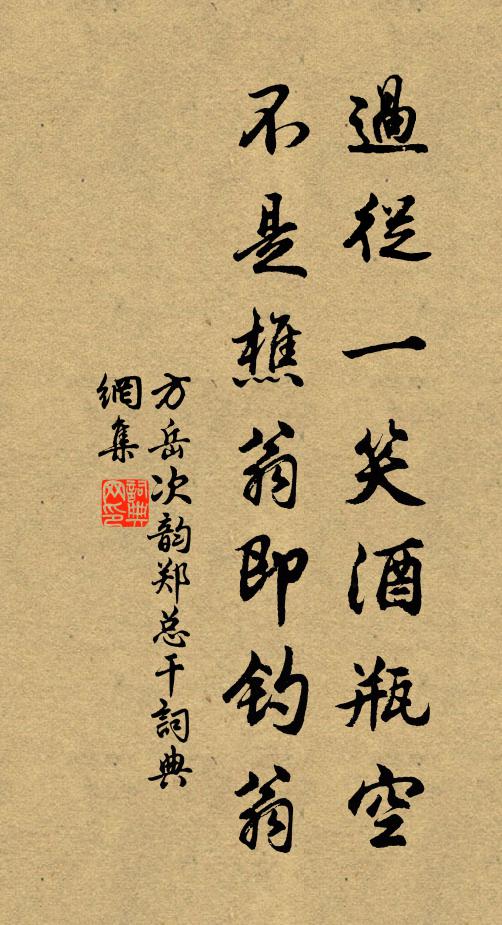 過從一笑酒瓶空
不是樵翁即釣翁
方岳次韵郑总干詞典
網集
詞典網印